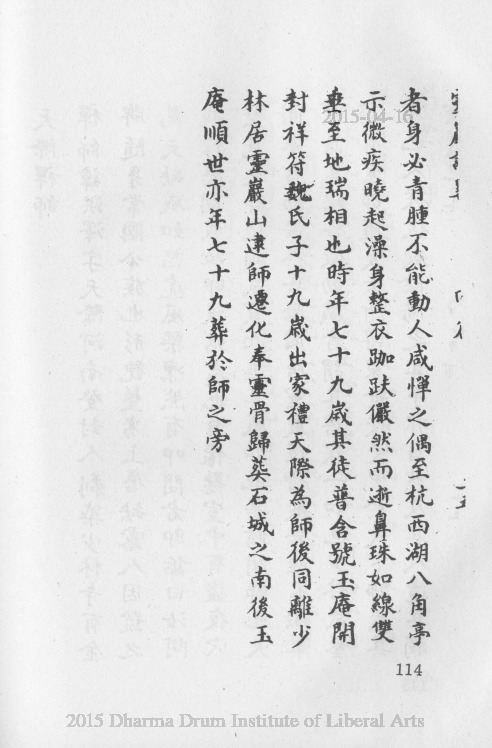 者身必青腫不能動人咸憚之偶至杭西湖八角亭
示微疾曉起澡身整衣跏趺儼然而逝鼻珠如線雙
垂至地瑞相也時年七十九歲其徒普含號玉庵開
封祥符魏氏子十九歲出家禮天際為師後同離少
林居靈巖山逮師遷化奉靈骨歸葬石城之南後玉
庵順世亦年七十九葬於師之旁
114
2015-04-16
2015 Dharma Drum Institute of Liberal Arts